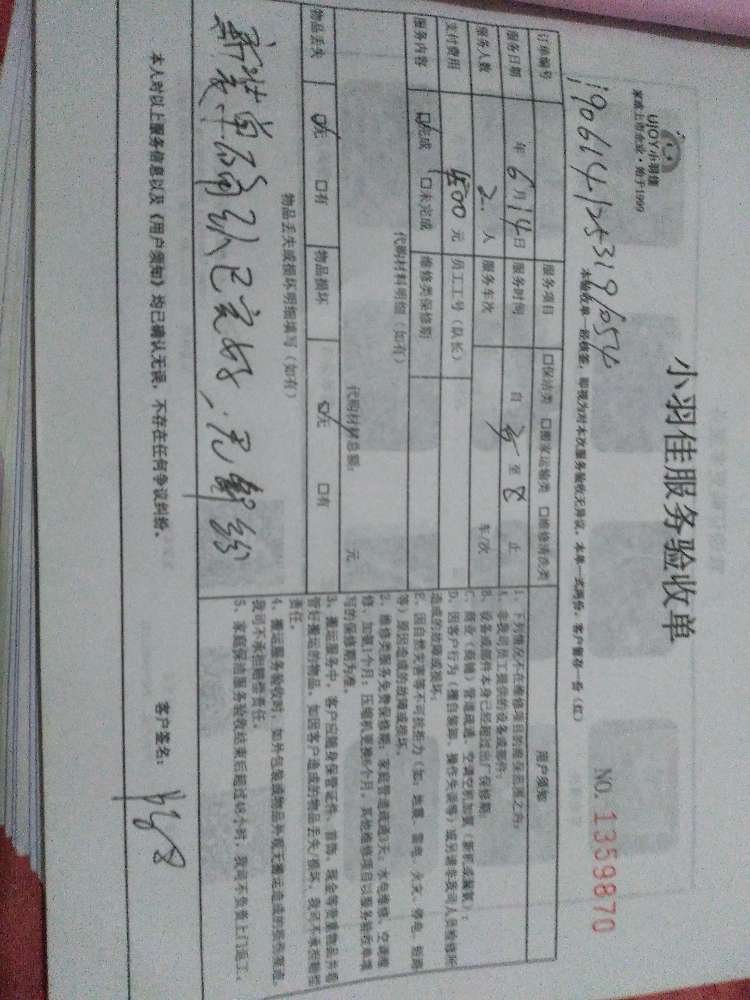 UJOY小羽佳
家政上市企业·始于1999
小羽佳服务验收单
NO. 1359870
190614125319654
本验收单一经收签，即视为对本次服务验收无异议，本单一式两份，客户留存一份（红）
订单编号 服务项目 □保洁类 □搬家运输类 □维修清洗类
服务日期 年 6 月 14 日 服务时间 自 至 8 止
服务人数 2 人 服务车次 车/次
支付费用 元 员工工号（队长）
服务内容 ☑完成 □未完成 维修类保修期
代购材料明细（如有）
代购材料总额： 元
物品丢失 ☑无 □有 物品损坏 ☑无 □有
物品丢失或损坏明细填写（如有）
已完好，无纠纷
用户须知
1、下列情况不在维修项目的质保范围之内：
A、非我司员工提供的设备或部件；
B、设备或部件本身已经超过出厂保修期；
C、商业（商铺）管道疏通、空调空机加氟（新机或漏氟）；
D、因客户行为（擅自装卸、操作失误等）或另请非我司人员检修所
造成的故障或损坏；
E、因自然灾害等不可抗拒力（如：地震、雷电、火灾、停电、短路
等）原因造成的故障或损坏。
2、维修类服务免费保修期：家庭管道疏通3天，水电维修、空调维
修、加氟1个月；压缩机更换6个月，其他维修项目以服务验收单填
写的保修期为准。
3、搬运服务中，客户应随身保管证件、首饰、现金等贵重物品并看
管好搬运的物品，如因客户造成的物品丢失/损坏，我司不承担赔偿
责任。
4、搬运服务验收时，如外包装或物品外观无搬运造成的损伤痕迹，
我司不承担赔偿责任。
5、家庭保洁服务验收结束后超过48小时，我司不负责上门返工。
本人对以上服务信息以及《用户须知》均已确认无误，不存在任何争议纠纷。
客户签名：